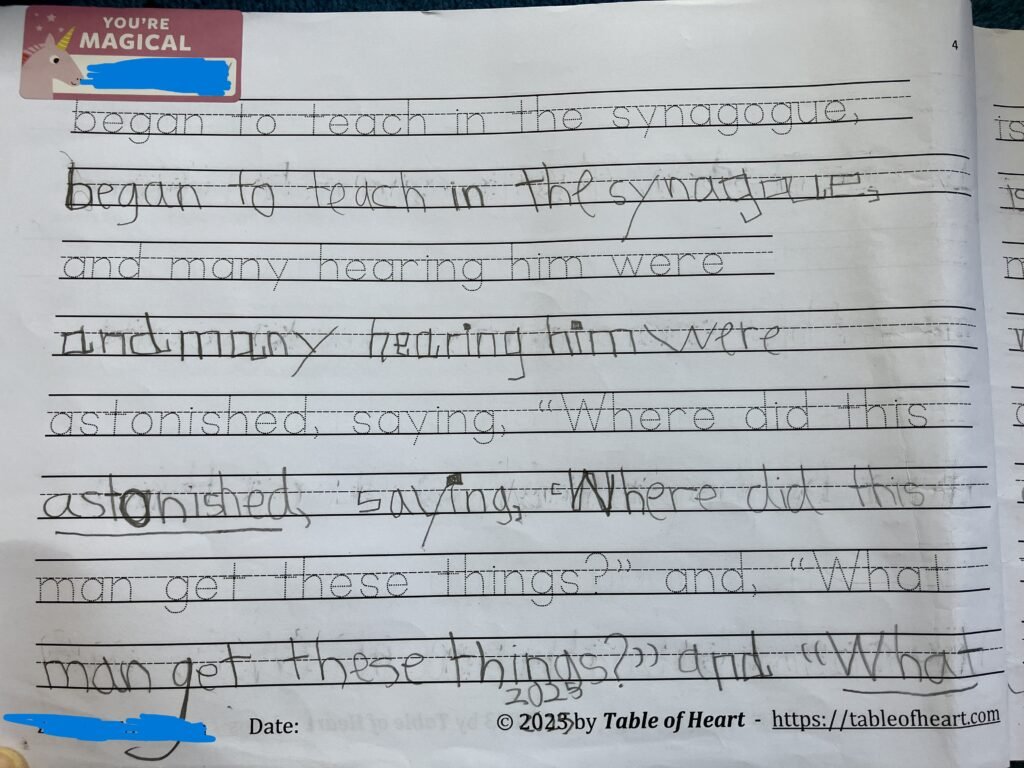 YOU'RE
MAGICAL
4
began to teach in the synagogue,
began to teach in the synagoue,
and many hearing him were
and many hearing him were
astonished, saying, “Where did this
astonished, saying, “Where did this
man get these things?” and, “What
man get these things?” and “What
2025
Date: © 2025 by Table of Heart - https://tableofheart.com